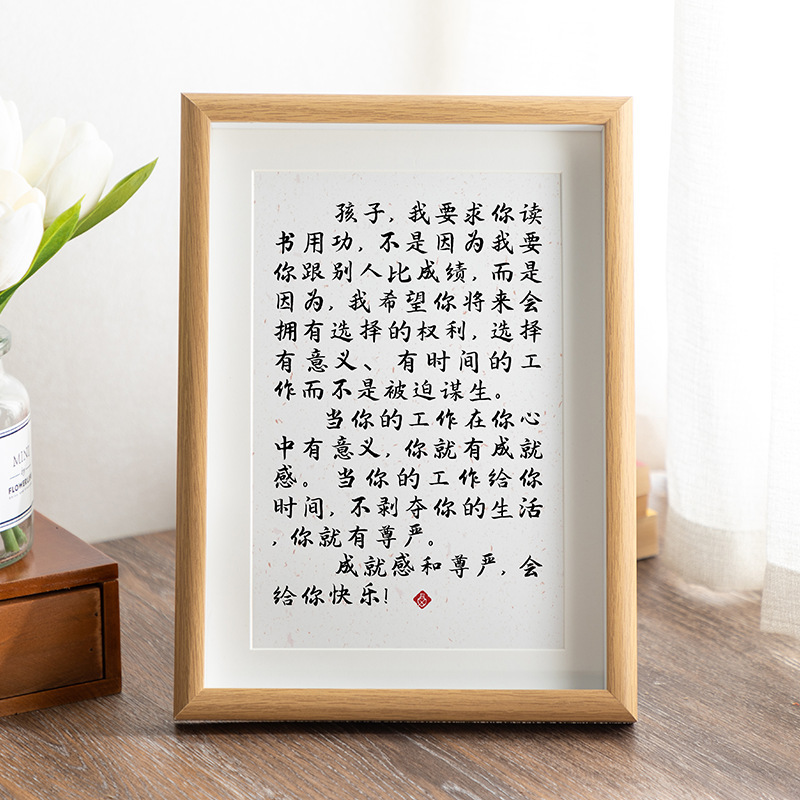 孩子，我要求你读
书用功，不是因为我要
你跟别人比成绩，而是
因为，我希望你将来会
拥有选择的权利，选择
有意义、有时间的工
作而不是被迫谋生。
当你的工作在你心
中有意义，你就有成就
感。当你的工作给你
时间，不剥夺你的生活
，你就有尊严。
成就感和尊严，会
给你快乐！